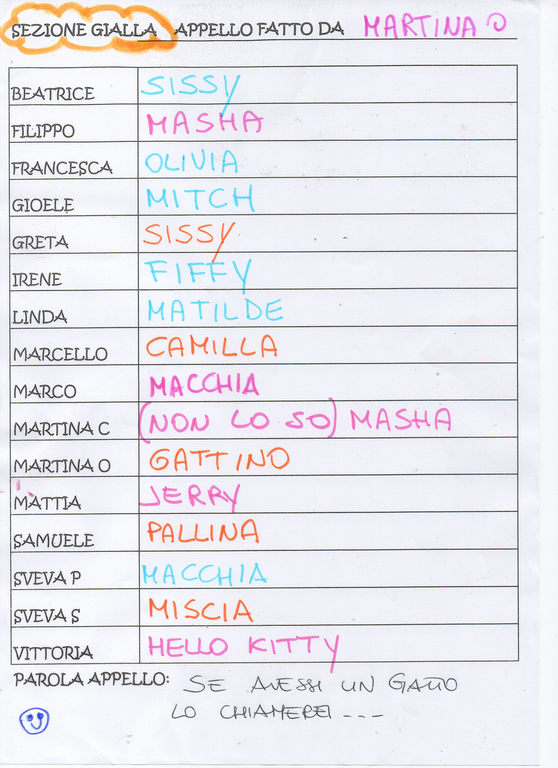 SEZIONE GIALLA APPELLO FATTO DA MARTINA O
BEATRICE SISSY
FILIPPO MASHA
FRANCESCA OLIVIA
GIOELE MITCH
GRETA SISSY
IRENE FIFFY
LINDA MATILDE
MARCELLO CAMILLA
MARCO MACCHIA
MARTINA C (NON LO SO) MASHA
MARTINA O GATTINO
MATTIA JERRY
SAMUELE PALLINA
SVEVA P MACCHIA
SVEVA S MISCIA
VITTORIA HELLO KITTY
PAROLA APPELLO: SE AVESSI UN GATTO
LO CHIAMEREI ---